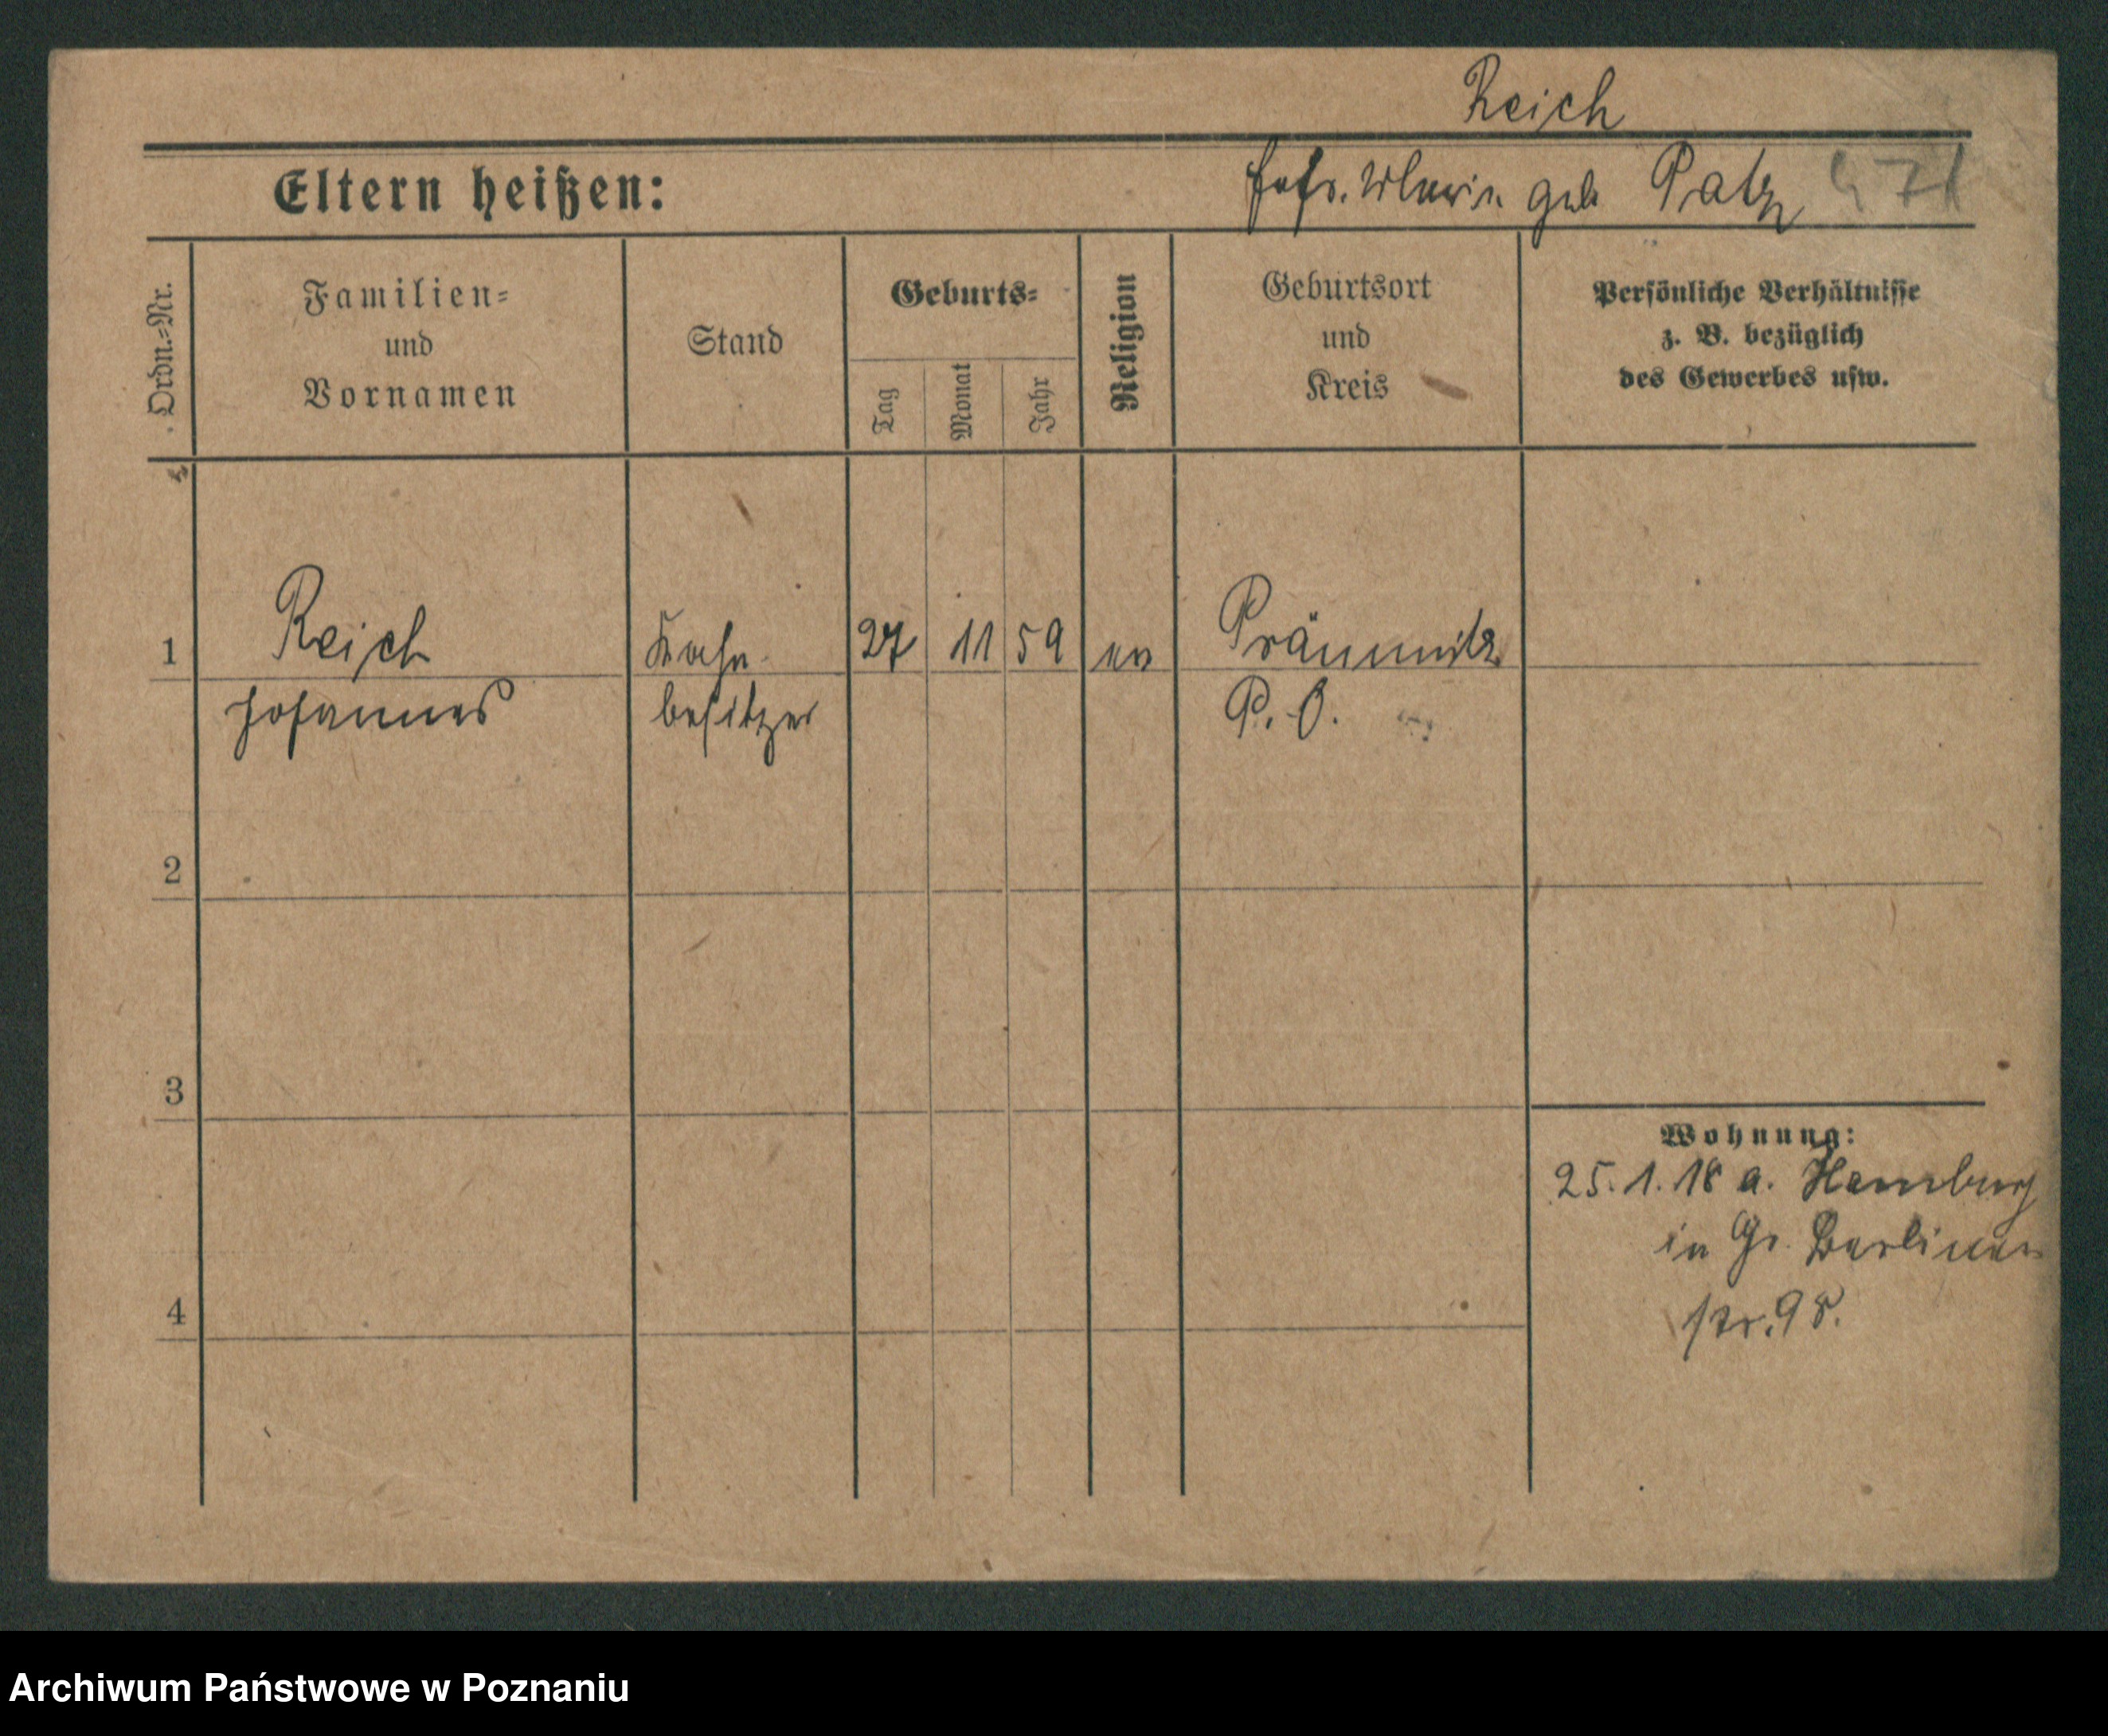 Reich
Eltern heißen: Joh. Marie geb Patz 471
Ordn.-Nr.
Familien-
und
Vornamen
Stand
Geburts-
Tag
Monat
Jahr
Religion
Geburtsort
und
Kreis
Persönliche Verhältnisse
z. B. bezüglich
des Gewerbes usw.
1 Reich Kahn- 27 11 59 ev Prämnitz
Johannes besitzer P. O.
2
3
Wohnung:
25. 1. 18 a. Hamburg
in Gr. Berliner
str. 98.
4
Archiwum Państwowe w Poznaniu